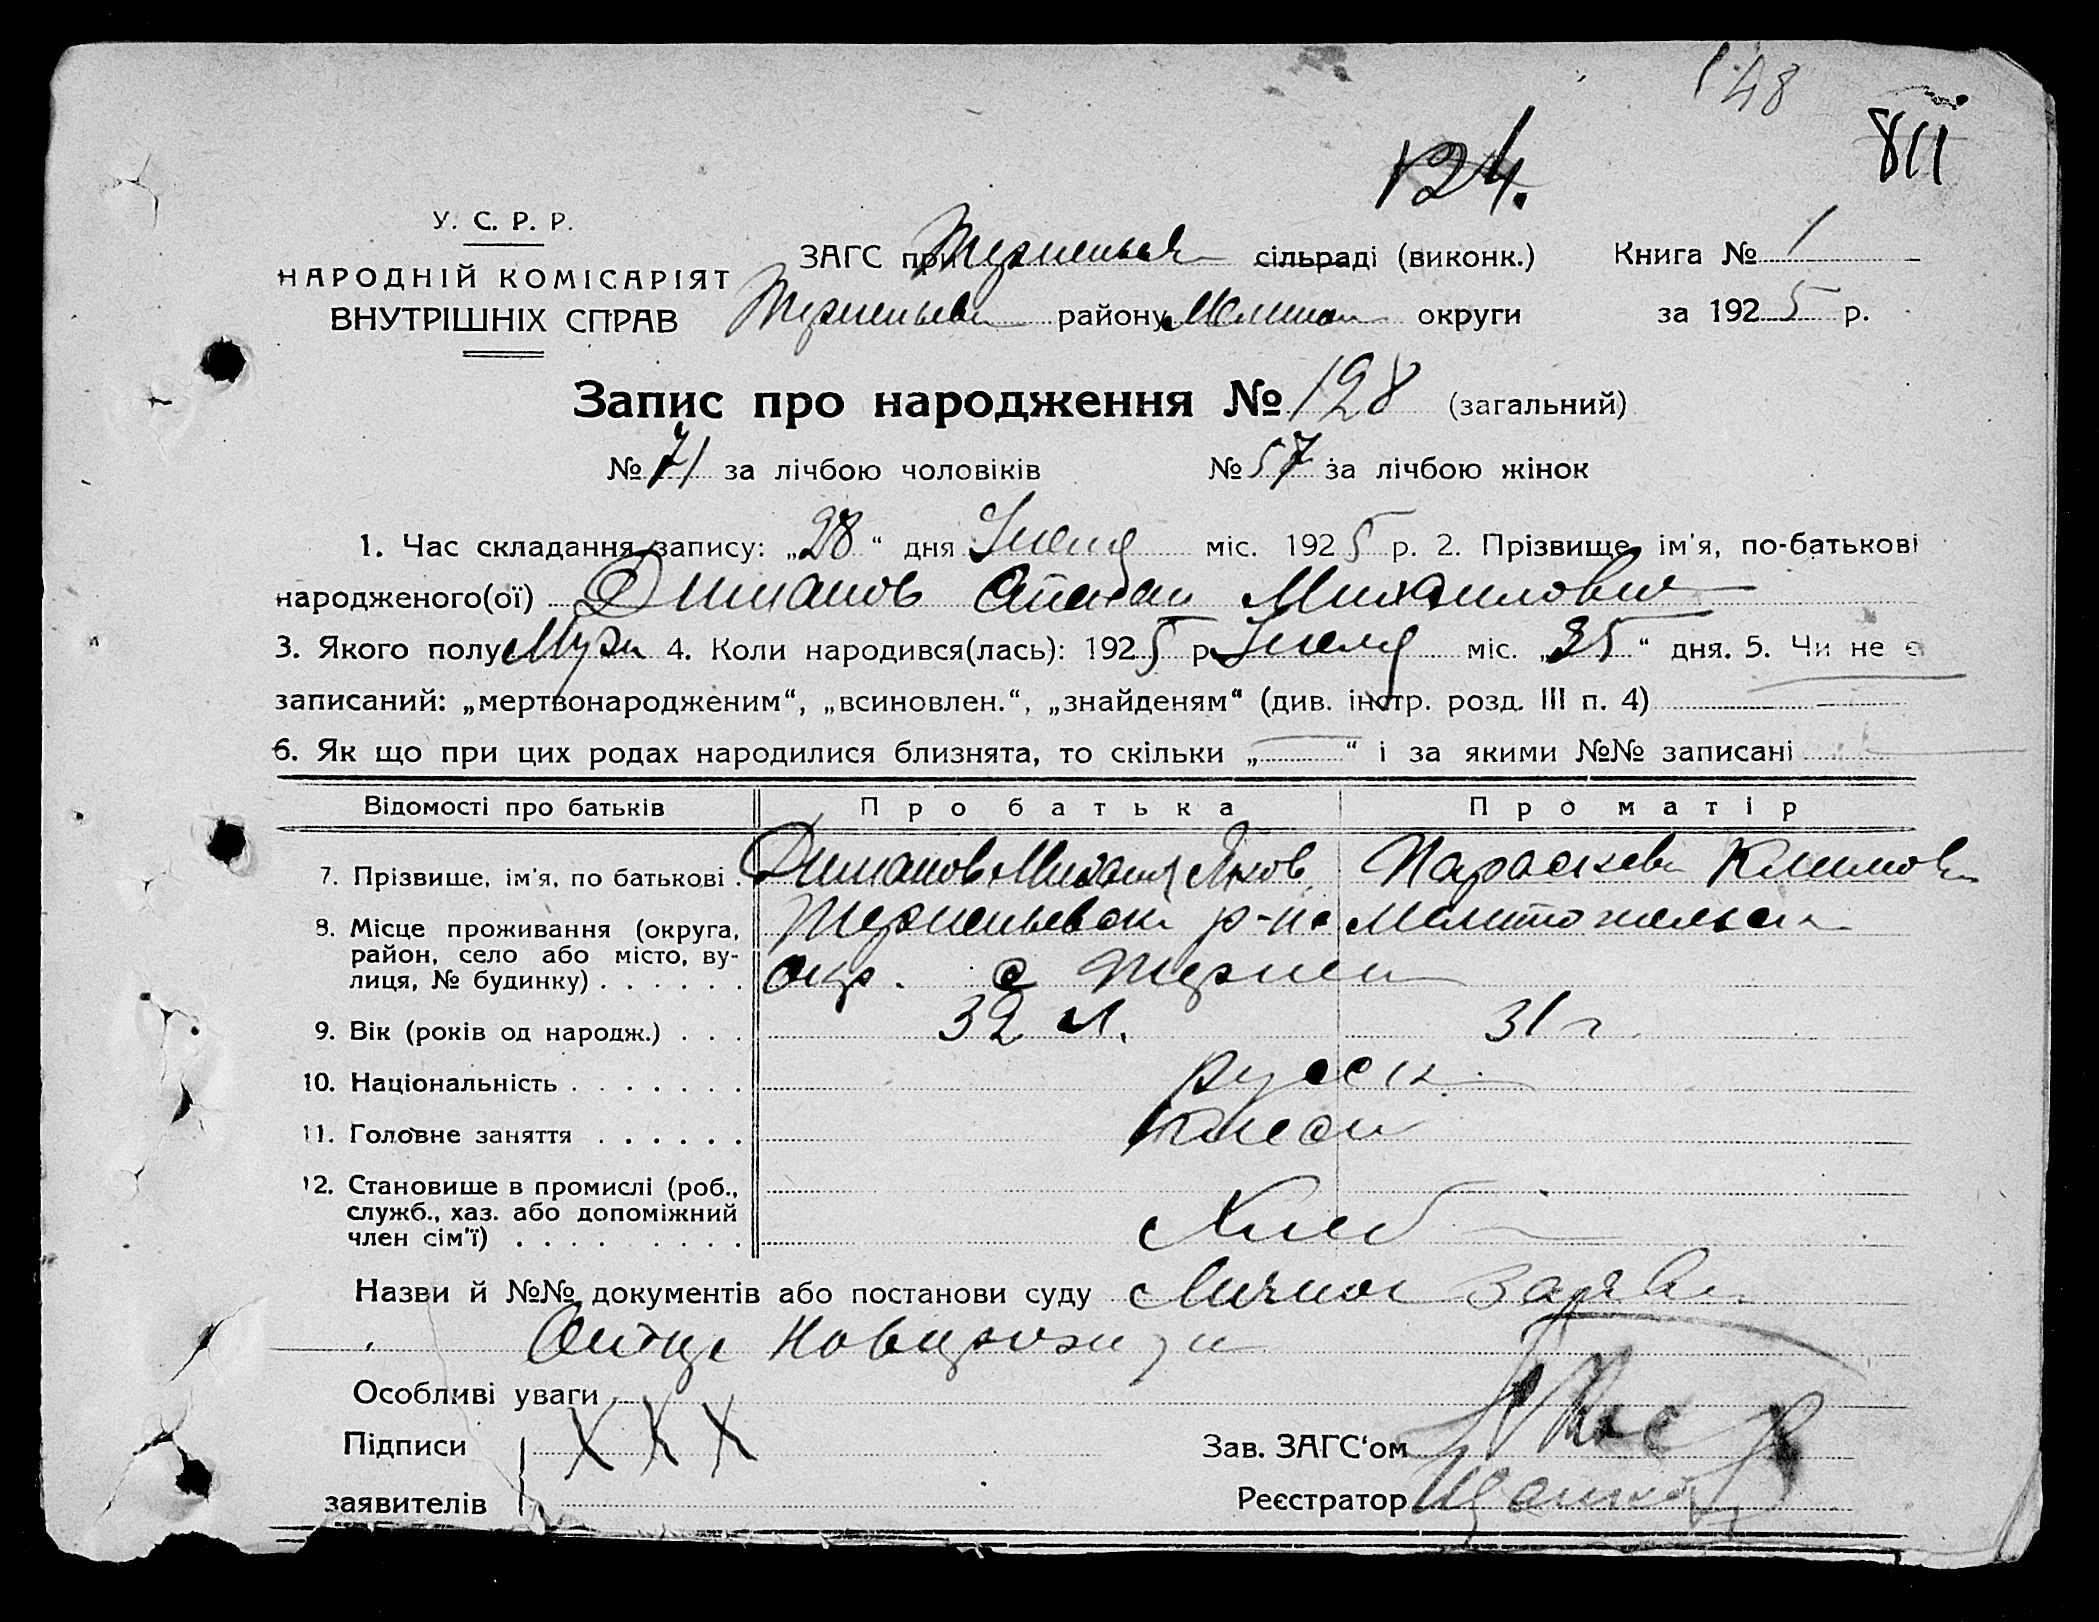 148
811
124.
У. С. Р. Р.
НАРОДНІЙ КОМІСАРІЯТ
ВНУТРІШНІХ СПРАВ
ЗАГС при сільраді (виконк.) Книга № 1
району округи за 1925 р.
Запис про народження № 128 (загальний)
№ 71 за лічбою чоловіків № 57 за лічбою жінок
1. Час складання запису: „28“ дня Июля міс. 1925 р. 2. Прізвище, ім'я, по-батькові
народженого(ої) Михаилович
3. Якого полу Муж 4. Коли народився(лась): 1925 р. Июля міс. „25“ дня. 5. Чи не є
записаний: „мертвонародженим“, „всиновлен.“, „знайденям“ (див. інстр. розд. III п. 4)
6. Як що при цих родах народилися близнята, то скільки „ “ і за якими №№ записані
Відомості про батьків Про батька Про матір
7. Прізвище, ім'я, по батькові . Михаил Яков. Параскева Климов
8. Місце проживання (округа, р-на Мелитопольск
район, село або місто, ву- окр. с
лиця, № будинку) . . . . . .
9. Вік (років од народж.) . . . 32 л. 31 г
10. Національність . . . . . . . русск
11. Головне заняття . . . . . .
12. Становище в промислі (роб.,
служб., хаз. або допоміжний Хлеб
член сім'ї) . . . . . . . .
Назви й №№ документів або постанови суду Личное заяв
Особливі уваги
Підписи ХХХ Зав. ЗАГС'ом
заявителів Реєстратор